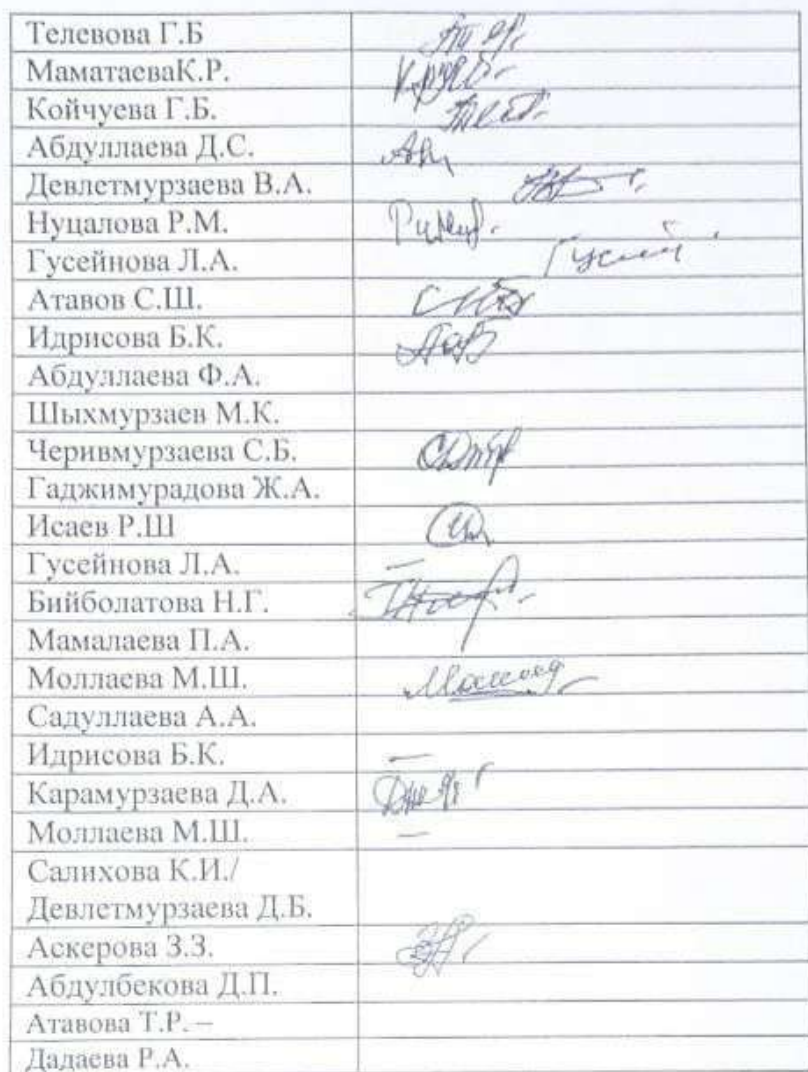 Телевова Г.Б
МаматаеваК.Р.
Койчуева Г.Б.
Абдуллаева Д.С.
Девлетмурзаева В.А.
Нуцалова Р.М.
Гусейнова Л.А.
Атавов С.Ш.
Идрисова Б.К.
Абдуллаева Ф.А.
Шыхмурзаев М.К.
Черивмурзаева С.Б.
Гаджимурадова Ж.А.
Исаев Р.Ш
Гусейнова Л.А. –
Бийболатова Н.Г.
Мамалаева П.А.
Моллаева М.Ш.
Садуллаева А.А.
Идрисова Б.К. –
Карамурзаева Д.А.
Моллаева М.Ш. –
Салихова К.И./
Девлетмурзаева Д.Б.
Аскерова З.З.
Абдулбекова Д.П.
Атавова Т.Р. –
Дадаева Р.А.